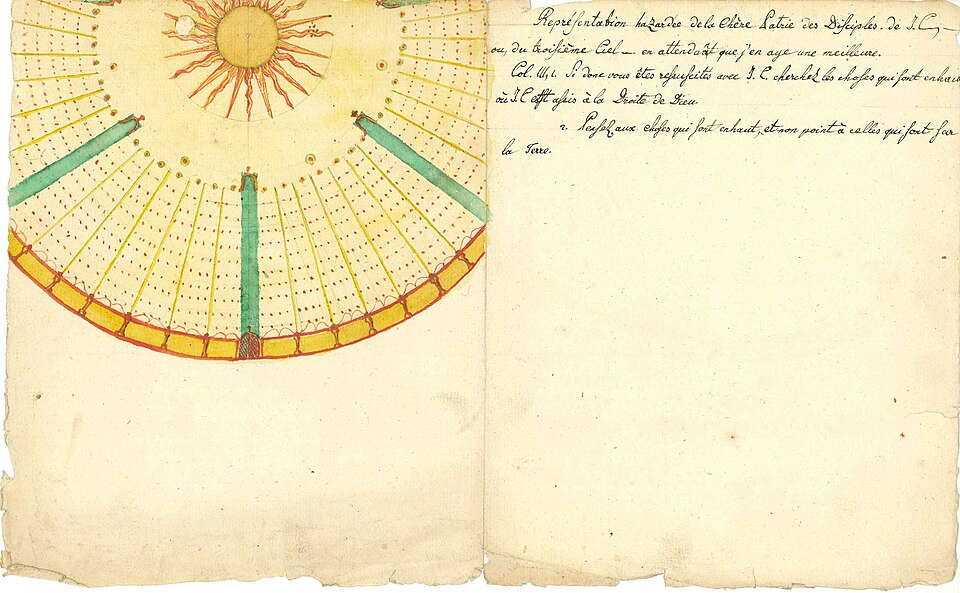 Représentation hazardée de la Chère Patrie des Disciples de J. C, —
ou, du troisième Ciel — en attendant que j'en aye une meilleure.
Col. III, 1. Si donc vous êtes resuscités avec J. C. cherchez les choses qui sont enhaut
où J. C. est assis à la Droite de Dieu.
2. Pensez aux choses qui sont enhaut, et non point à celles qui sont sur
la Terre.